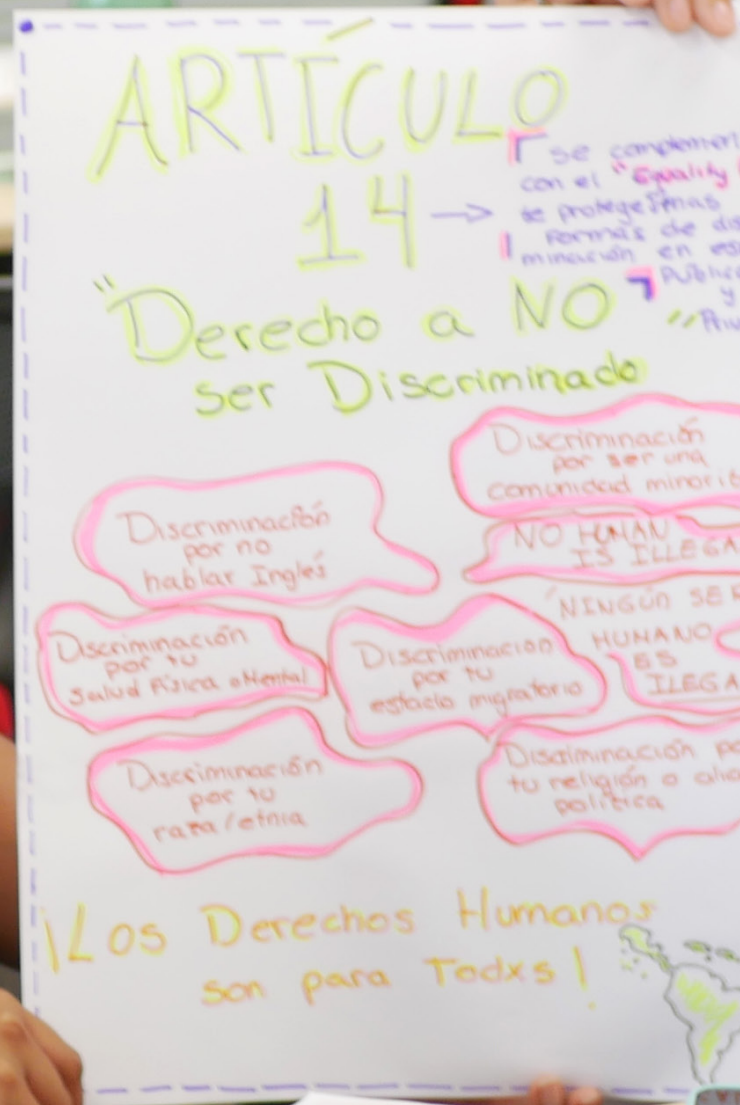 ARTÍCULO
14 →
se complement
con el "Equality
te protege
Formas de dis
minación en es
Públic
y
"Priv
"Derecho a NO
ser Discriminado
Discriminación
por ser una
comunidad minorit
Discriminación
por no
hablar Inglés
NO HUMAN
IS ILLEGA
NINGÚN SER
HUMANO
ES
ILEGA
Discriminación
por tu
Salud Física o Mental
Discriminacion
por tu
estado migratorio
Discriminación
por tu
raza/etnia
Discriminación po
tu religión o
política
¡Los Derechos Humanos
son para Todxs!